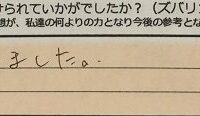 けられていかがでしたか？（ズバリ
想が、私達の何よりの力となり今後の参考とな
ました。